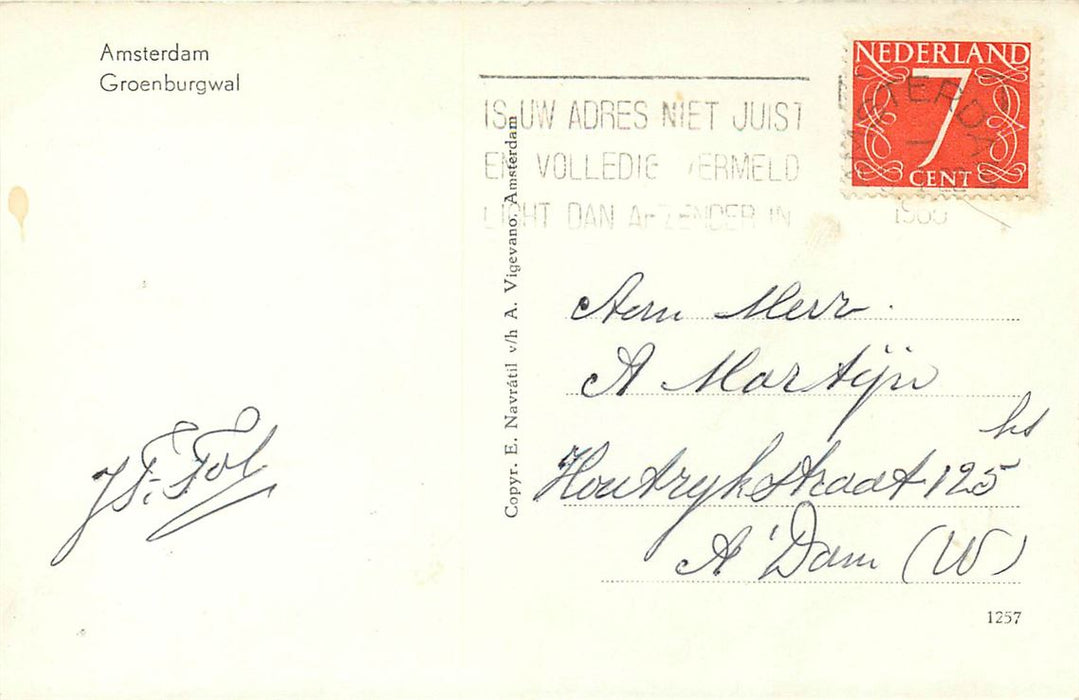 Amsterdam
Groenburgwal
IS UW ADRES NIET JUIST
EN VOLLEDIG VERMELD
LICHT DAN AFZENDER IN
NEDERLAND
7
CENT
AMSTERDAM
Copyr. E. Navrátil v/h A. Vigevano, Amsterdam
Aan Heer
A Martijn
hs
Houtrykstraat 125
A'Dam (W)
J F. Fol
1257